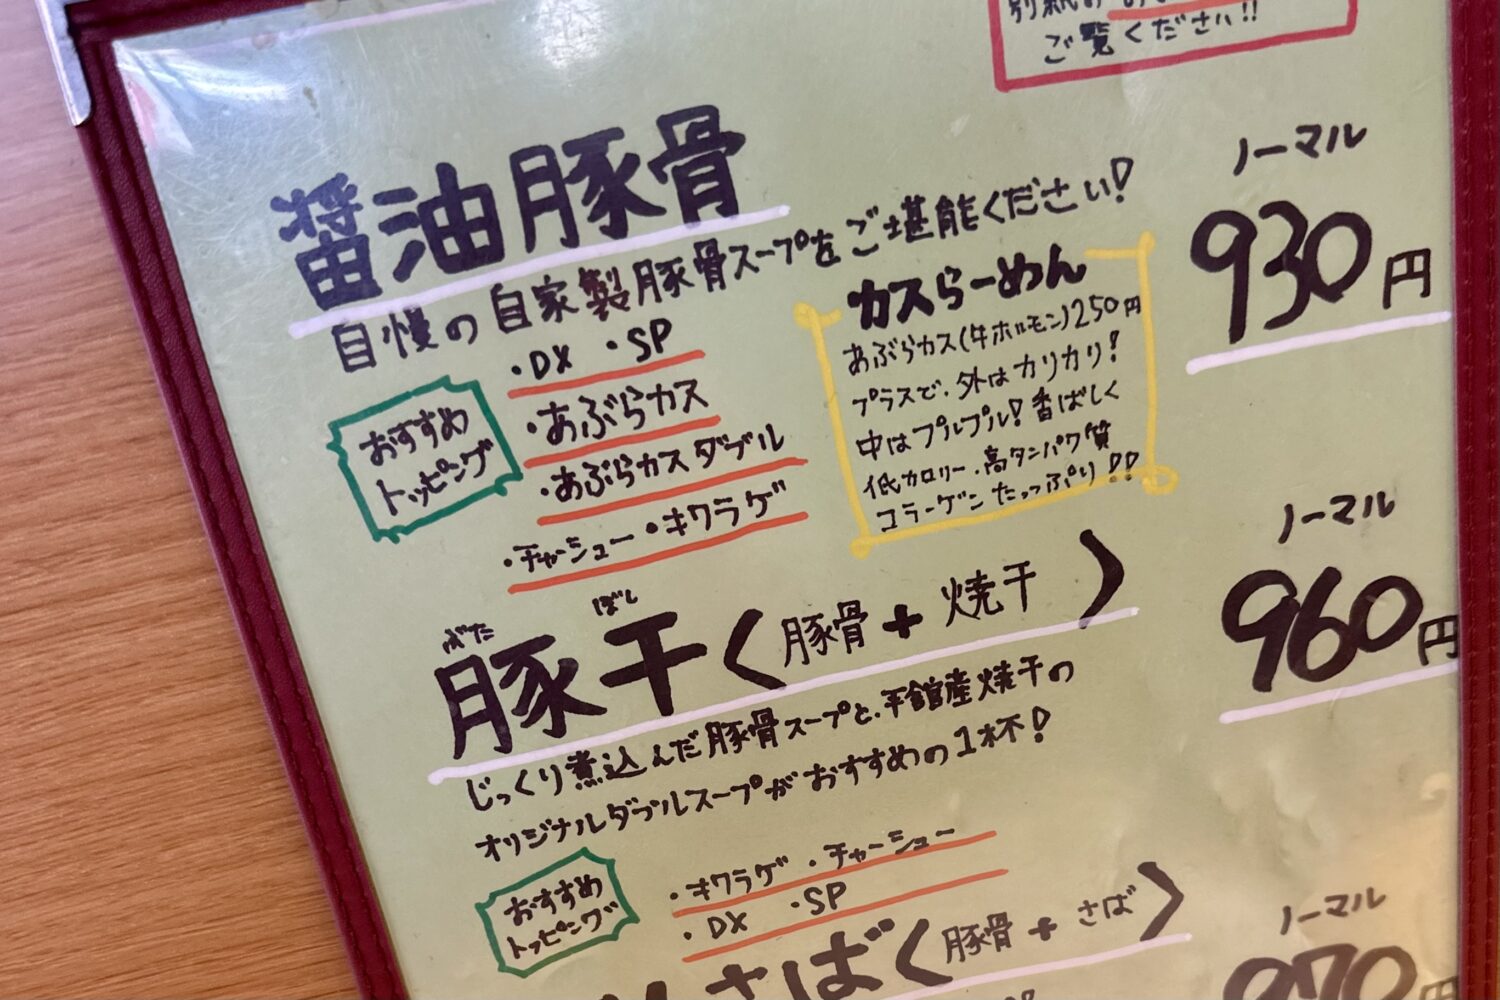 ご覧ください!!
醤油豚骨
自慢の自家製豚骨スープをご堪能ください!
ノーマル
930円
おすすめ
トッピング
・DX ・SP
・あぶらカス
・あぶらカスダブル
・チャーシュー・キクラゲ
カスらーめん
あぶらカス(牛ホルモン)250円
プラスで、外はカリカリ!
中はプルプル!香ばしく
低カロリー、高タンパク質
コラーゲンたっぷり!!
ぶた ぼし
豚干く豚骨+焼干)
ノーマル
960円
じっくり煮込んだ豚骨スープと、平舘産焼干の
オリジナルダブルスープがおすすめの1杯!
おすすめ
トッピング
・キクラゲ ・チャーシュー
・DX ・SP
さばく豚骨+さば)
ノーマル
970円